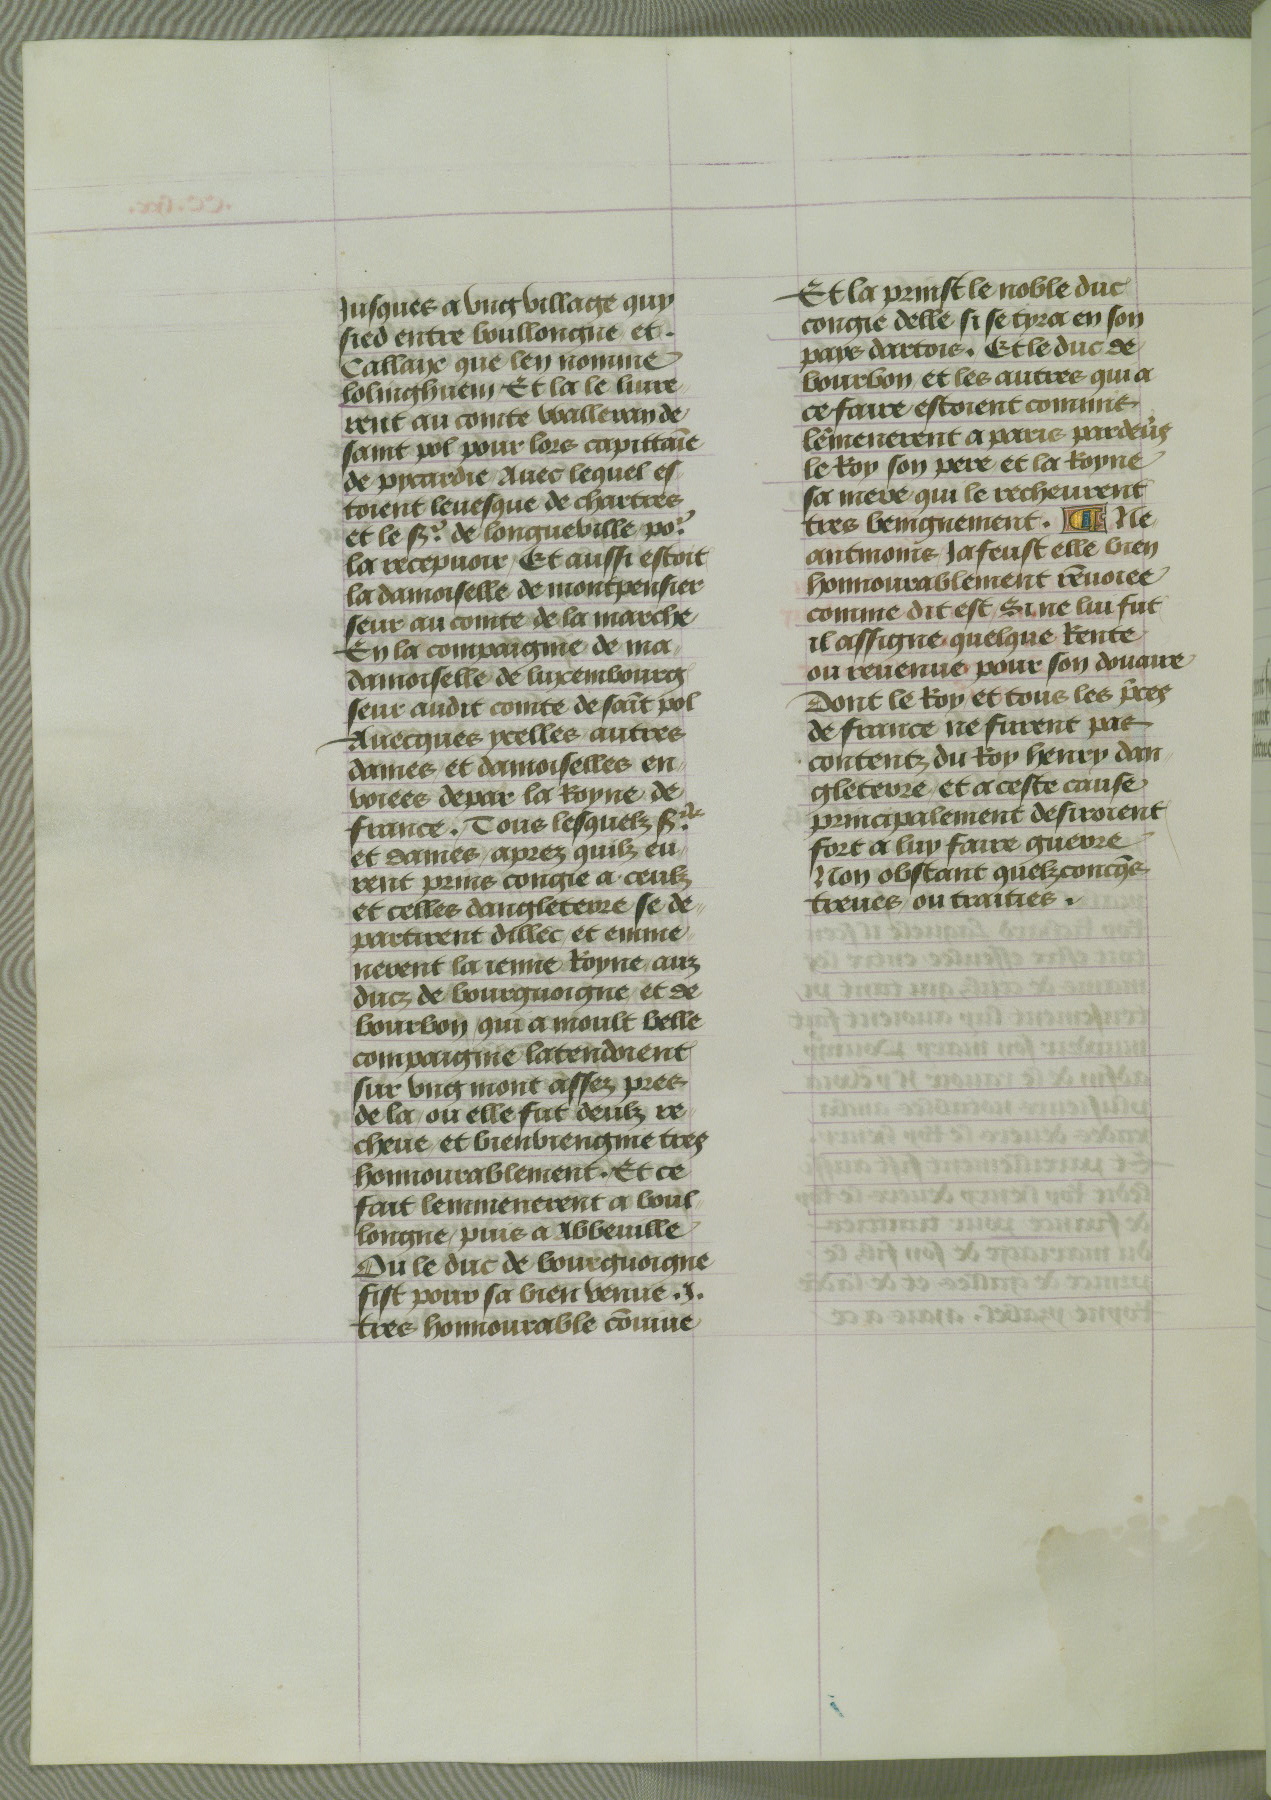 Jusques a vng village quy
sied entre boullongne et.
Callaix que len nomme
lolinghuem / Et la le liure
rent au comte walleran de
saint pol pour lors capittaīe
de pycardie / Auec lequel es
toient leuesque de chartres
et le sr̄. de longueville / por̄
la recepuoir / Et aussi estoit
la damoiselle de montpensier
seur au comte de la marche
En la compaignie de ma
damoiselle de luxembourg
seur audit comte de saīt pol
Auecques ycelles autres
dames et damoiselles en
voiees depar la Royne de
france. Tous lesquelz srs̄
et dames / aprez quilz eu
rent prins congie a ceulz
et celles dangleterre se de
partirent dillec / et emme
nerent la ienne Royne auz
ducz de bourguoigne et de
bourbon / qui a moult belle
compaignie latendoient
sur vng mont assez pres
de la / ou elle fut deulz re
cheue / et bienviengnie tres
honnourablement. Et ce
fait lemmenerent a boul
longne / puis a Abbeuille
Ou le duc de bourguoigne
fist pour sa bien venue .J.
tres honnourable cōuiue
Et la prinst le noble duc
congie delle si se tyra en son
pays dartois. Et le duc de
bourbon et les autres qui a
ce faire estoient commis
lēmenerent a paris pardeūs
le Roy son pere et la Royne
sa mere qui le recheurent
tres benignement. Ne
antmoins Ja feust elle bien
honnourablement rēuoiee
comme dit est / Si ne lui fut
il assigne quelque Rente
ou reuenue pour son douaire
Dont le Roy et tous les p̄ces
de france ne furent pas
contentz du Roy henry dan
gleterre / et a ceste cause
principalement desiroient
fort a luy faire guerre
Non obstant quelzconcq̄s
treues / ou traities.